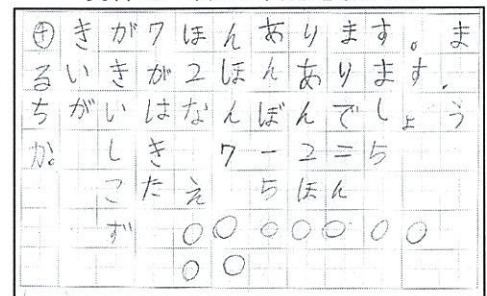 ④きが7ほんあります。ま
るいきが2ほんあります.
ちがいはなんぼんでしょう
か。しき 7-2=5
こたえ 5ほん
ず ○○○○○○○
○○